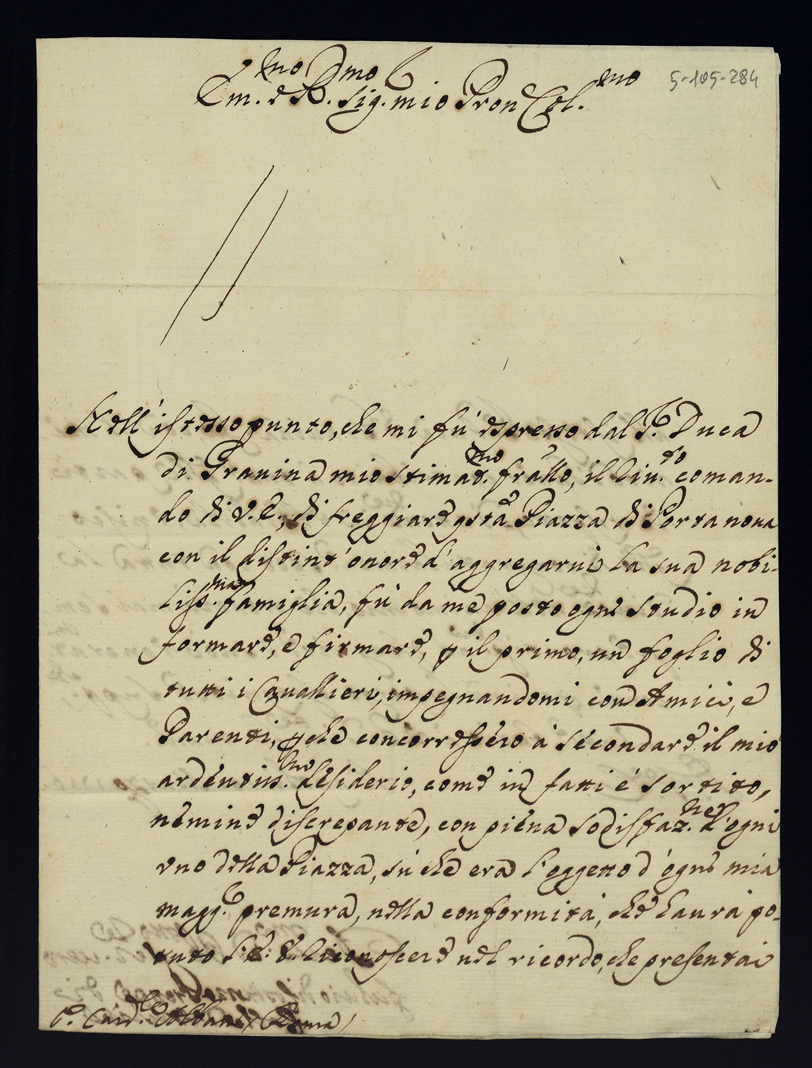 5-105-284
Em.mo e R.mo Sig. mio Pron Col.mo
Nell' istesso punto, che mi fù espresso dal S. Duca
di Gravina mio stimat.mo frãllo, il riu.to coman-
do di V. E., di freggiare q̃sta Piazza di Portanova
con il distint' onore d'aggregarui la sua nobi-
liss.ma famiglia, fù da me posto ogni studio in
formare, e firmare, p̱ il primo, un foglio di
tutti i Cauallieri, impegnandomi con Amici, e
Parenti, p̱che concorressero à secondare il mio
ardentiss.mo desiderio, come in fatti è sortito,
nemine discrepante, con piena sodisfaz.ne d'ogni
uno della Piazza, sù che era l'oggetto d'ogni mia
magg.r premura, nella conformità, che haurà po-
tuto V. E. riconoscere nel ricordo, che presentai
S. Card.le Albani (Roma)